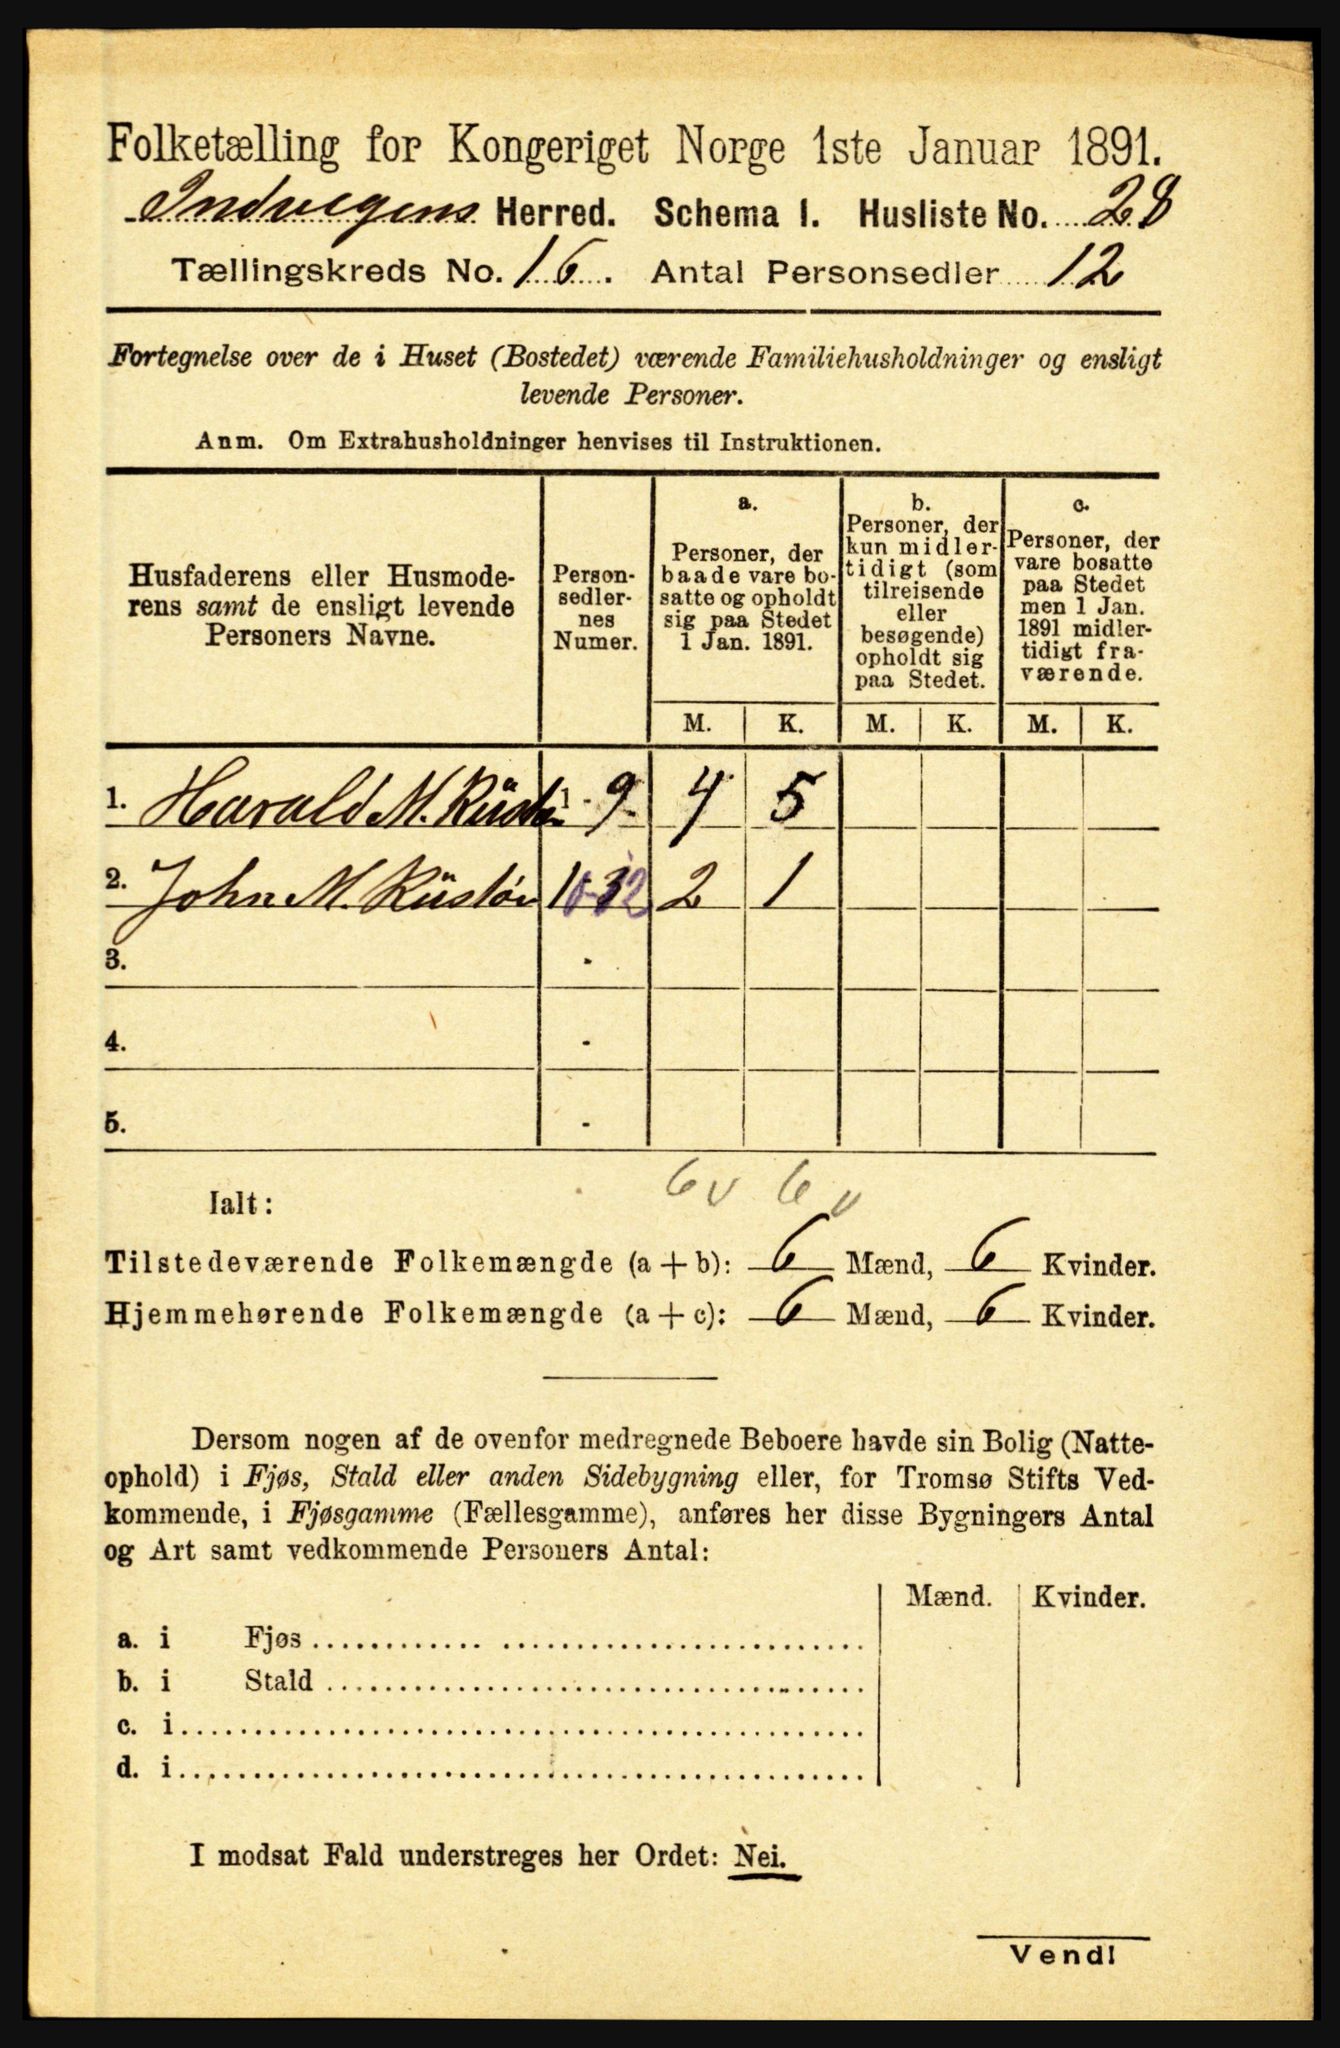 Folketælling for Kongeriget Norge 1ste Januar 1891.
Indvigens Herred. Schema 1. Husliste No. 28
Tællingskreds No. 16. Antal Personsedler 12
Fortegnelse over de i Huset (Bostedet) værende Familiehusholdninger og ensligt
levende Personer.
Anm. Om Extrahusholdninger henvises til Instruktionen.
Husfaderens eller Husmode-
rens samt de ensligt levende
Personers Navne.
Person-
sedler-
nes
Numer.
a.
Personer, der
baade vare bo-
satte og opholdt
sig paa Stedet
1 Jan. 1891.
b.
Personer, der
kun midler-
tidigt (som
tilreisende
eller
besøgende)
opholdt sig
paa Stedet.
c.
Personer, der
vare bosatte
paa Stedet
men 1 Jan.
1891 midler-
tidigt fra-
værende.
M. K. M. K. M. K.
1. Harald M. 1 - 9 4 5
2. John M. 2 1
3. -
4. -
5. -
6 v 6 v
Ialt:
Tilstedeværende Folkemængde (a + b): 6 Mænd, 6 Kvinder.
Hjemmehørende Folkemængde (a + c): 6 Mænd, 6 Kvinder.
Dersom nogen af de ovenfor medregnede Beboere havde sin Bolig (Natte-
ophold) i Fjøs, Stald eller anden Sidebygning eller, for Tromsø Stifts Ved-
kommende, i Fjøsgamme (Fællesgamme), anføres her disse Bygningers Antal
og Art samt vedkommende Personers Antal:
Mænd. Kvinder.
a. i Fjøs
b. i Stald
c. i
d. i
I modsat Fald understreges her Ordet: Nei.
Vend!